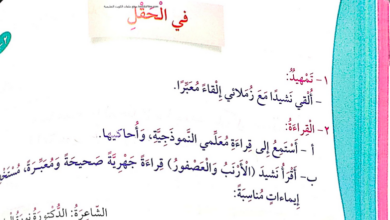 في الْحَقْلِ
١- تَمْهِيدٌ:
- أُلْقِي نَشِيدًا مَعَ زُمَلَائِي إِلْقَاءً مُعَبِّرًا.
٢- الْقِرَاءَةُ:
أ - أَسْتَمِعُ إِلَى قِرَاءَةِ مُعَلِّمِي النَّمُوذَجِيَّةِ، وَأُحَاكِيهَا.
ب- أَقْرَأُ نَشِيدَ (الْأَرْنَبُ وَالْعُصْفُورُ) قِرَاءَةً جَهْرِيَّةً صَحِيحَةً وَمُعَبِّرَةً،
إِيمَاءَاتٍ مُنَاسِبَةً:
الشَّاعِرَةُ: الدُّكْتُورَةُ